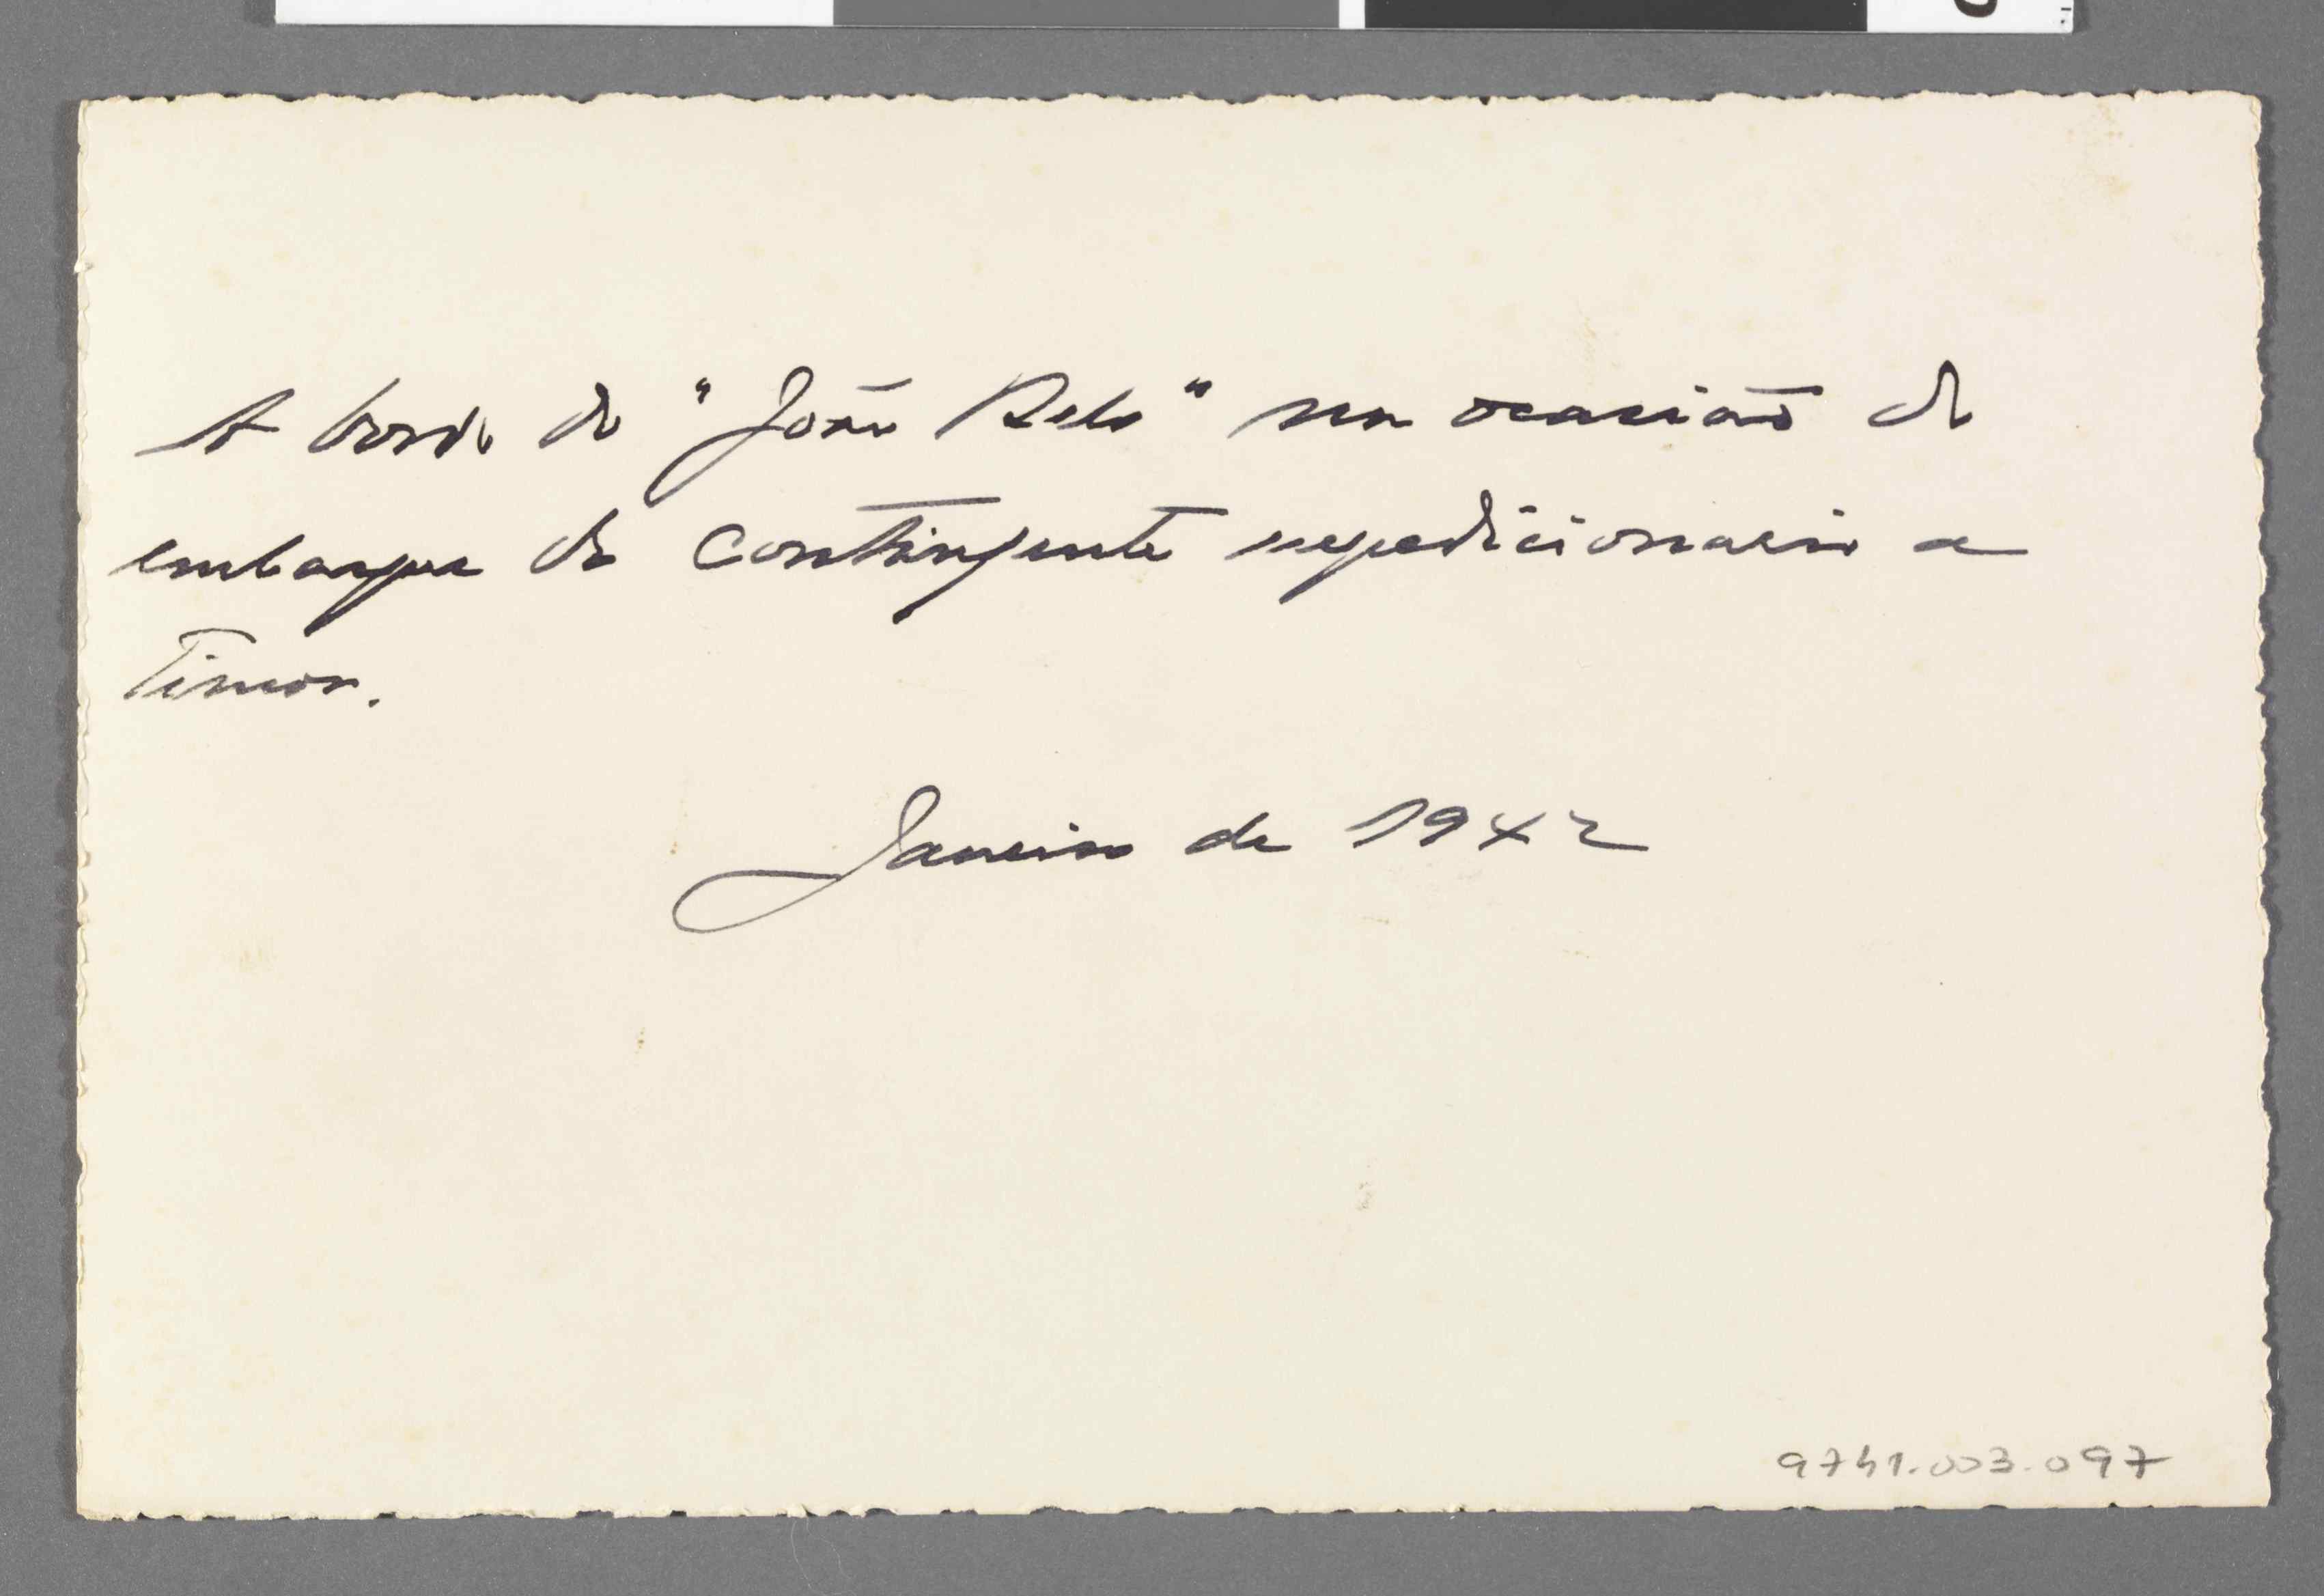 A bordo do "João Belo" na ocasião do
embarque do contingente expedicionario a
Timor.
Janeiro de 1942
9741.003.097